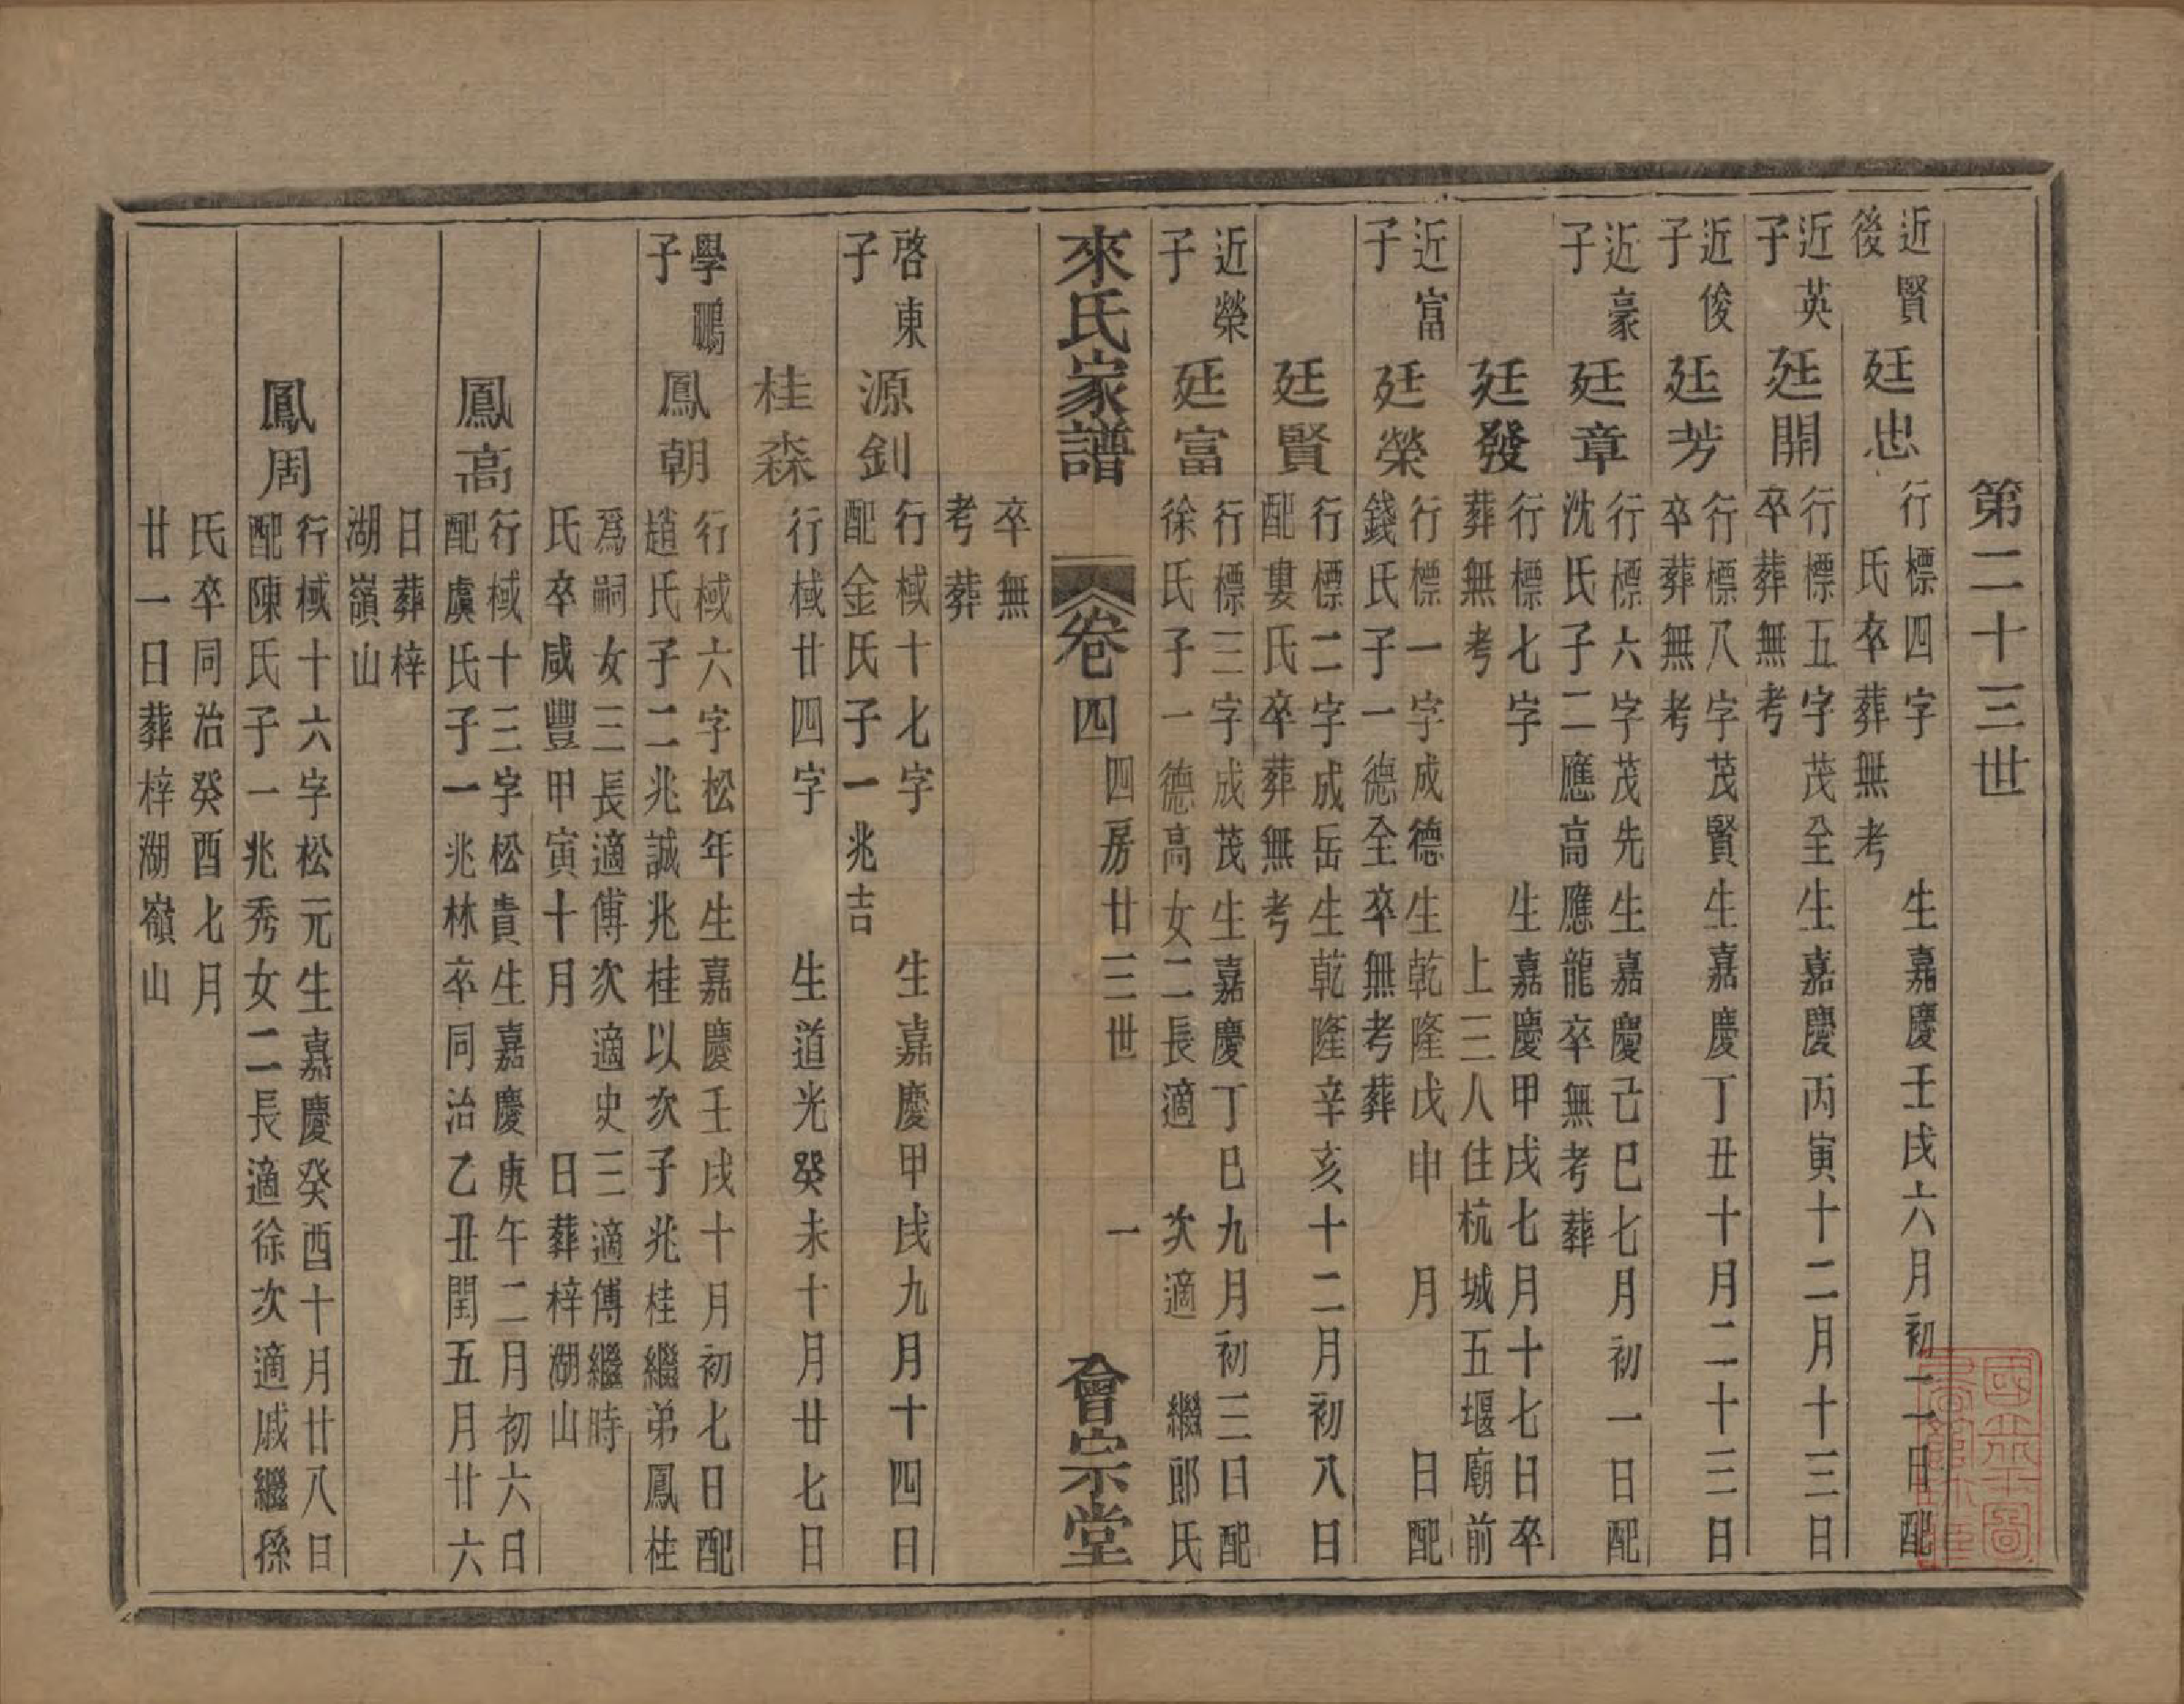 第二十三世
近賢後
廷忠
行標四字　生嘉慶壬戌六月初二日配
氏卒葬無考
近英子
廷開
行標五字茂全生嘉慶丙寅十二月十三日
卒葬無考
近俊子
廷芳
行標八字茂賢生嘉慶丁丑十月二十三日
卒葬無考
近豪子
廷章
行標六字茂先生嘉慶己巳七月初一日配
沈氏子二應高應龍卒無考葬
廷發
行標七字　生嘉慶甲戌七月十七日卒
葬無考　上三人住杭城五堰廟前
近富子
廷榮
行標一字成德生乾隆戊申　月　日配
錢氏子一德全卒無考葬
廷賢
行標二字成岳生乾隆辛亥十二月初八日
配婁氏卒葬無考
近榮子
廷富
行標三字成茂生嘉慶丁巳九月初三日配
徐氏子一德高女二長適　次適　繼郎氏
來氏家譜　卷四　四房廿三世　一　會宗堂
卒無
考葬
啓東子
源釗
行棫十七字　生嘉慶甲戌九月十四日
配金氏子一兆吉
桂森
行棫廿四字　生道光癸未十月廿七日
學鵬子
鳳朝
行棫六字松年生嘉慶壬戌十月初七日配
趙氏子二兆誠兆桂以次子兆桂繼弟鳳桂
為嗣女三長適傅次適史三適傅繼時
氏卒咸豐甲寅十月　日葬梓湖山
鳳高
行棫十三字松貴生嘉慶庚午二月初六日
配虞氏子一兆林卒同治乙丑閏五月廿六
日葬梓
湖嶺山
鳳周
行棫十六字松元生嘉慶癸酉十月廿八日
配陳氏子一兆秀女二長適徐次適戚繼孫
氏卒同治癸酉七月
廿一日葬梓湖嶺山